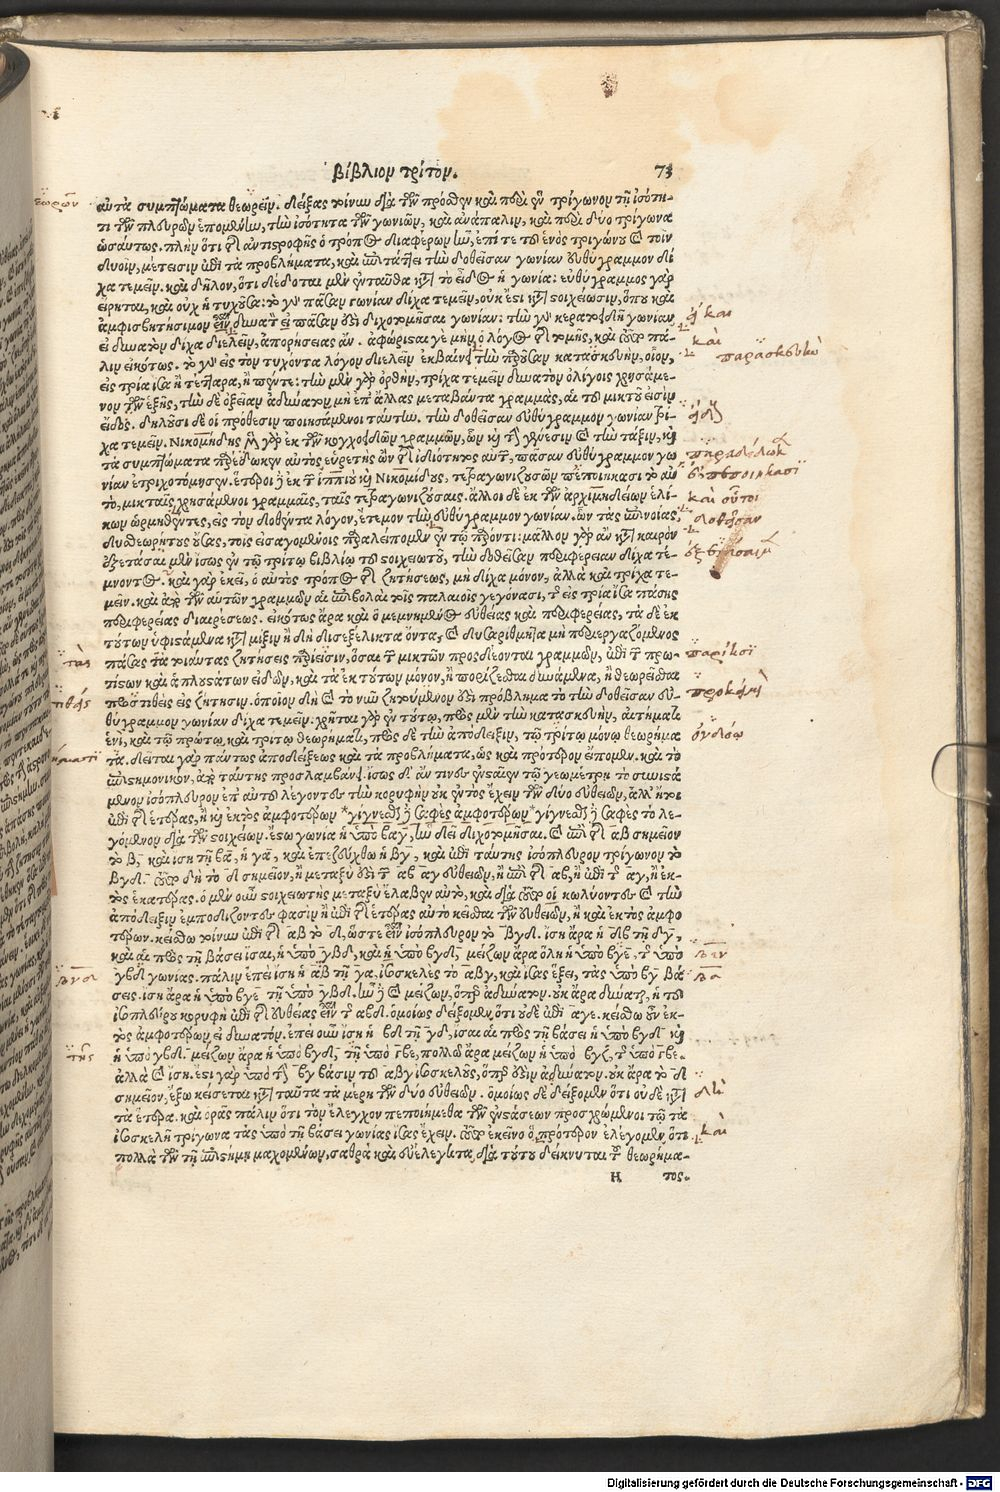 βίβλιον τρίτον. 73
αὐτὰ συμπτώματα θεωρεῖν. δείξας τοίνυν διὰ τῶν πρόσθεν καὶ περὶ ἓν τρίγωνον τῇ ἰσότη-
τι τῶν πλευρῶν ἑπομένην, τὴν ἰσότητα τῶν γωνιῶν, καὶ ἀνάπαλιν, καὶ περὶ δύο τρίγωνα
ὡσαύτως. πλὴν ὅτι τῆς ἀντιστροφῆς ὁ τρόπος διαφέρων ἦν, ἐπί τε τοῦ ἑνὸς τριγώνου καὶ τοῖν
δυοῖν, μέτεισιν ἐπὶ τὰ προβλήματα, καὶ ἐπιτάττει τὴν δοθεῖσαν γωνίαν εὐθύγραμμον δί
χα τεμεῖν. καὶ δῆλον, ὅτι δέδοται μὲν ἐνταῦθα κατὰ τὸ εἶδος ἡ γωνία: εὐθύγραμμος γὰρ
εἴρηται, καὶ οὐχ ἡ τυχοῦσα: τὸ γὰρ πᾶσαν γωνίαν δίχα τεμεῖν, οὐκ ἔστι κατὰ στοιχείωσιν, ὅπου καὶ
ἀμφισβητήσιμον εἶναι δυνατὸν εἰ πᾶσαν ἔστι διχοτομῆσαι γωνίαν: τὴν γὰρ κερατοειδῆ γωνίαν
εἰ δυνατὸν δίχα διελεῖν, ἀπορήσειας ἄν.
λιν εἰκότως. τὸ γὰρ εἰς τὸν τυχόντα λόγον διελεῖν ἐκβαίνει τὴν παροῦσαν κατασκευὴν, οἷον,
εἰς τρία ἴσα ἢ τέτταρα, ἢ πέντε: τὴν μὲν γὰρ ὀρθὴν, τρίχα τεμεῖν δυνατὸν ὀλίγοις χρησάμε-
νον τῶν ἑξῆς, τὴν δὲ ὀξεῖαν ἀδύνατον, μὴ ἐπ' ἄλλας μεταβάντα γραμμὰς, αἳ τοῦ μικτοῦ εἰσὶν
εἴδους. δηλοῦσι δὲ οἱ πρόθεσιν ποιησάμενοι ταύτην. τὴν δοθεῖσαν εὐθύγραμμον γωνίαν τρί-
χα τεμεῖν. Νικομήδης μὲν γὰρ ἐκ τῶν κογχοειδῶν γραμμῶν, ὧν καὶ τὴν γένεσιν καὶ τὴν τάξιν, καὶ
τὰ συμπτώματα παρέδωκεν αὐτὸς εὑρετὴς ὢν τῆς ἰδιότητος αὐτῶν, πᾶσαν εὐθύγραμμον γω
νίαν ἐτριχοτόμησεν. ἕτεροι δὲ ἐκ τῶν ἱππίου καὶ Νικομίδους, τετραγωνιζουσῶν πεποίηκασι τὸ αὐ
τὸ, μικταῖς χρησάμενοι γραμμαῖς, ταῖς τετραγωνιζούσαις. ἄλλοι δὲ ἐκ τῶν ἀρχιμηδείων ἑλί-
κων ὡρμηθέντες, εἰς τὸν δοθέντα λόγον, ἔτεμον τὴν εὐθύγραμμον γωνίαν. ὧν τὰς ἐπινοίας,
δυσθεωρήτους οὔσας, τοῖς εἰσαγομένοις παραλείπομεν ἐν τῷ παρόντι: μᾶλλον γὰρ ἂν κατὰ καιρὸν
ἐξετάσαιμεν ἴσως ἐν τῷ τρίτῳ βιβλίῳ τοῦ στοιχειωτοῦ, τὴν δοθεῖσαν περιφέρειαν δίχα τέ-
μνοντος. καὶ γὰρ ἐκεῖ, ὁ αὐτὸς τρόπος τῆς ζητήσεως, μὴ δίχα μόνον, ἀλλὰ καὶ τρίχα τε-
μεῖν. καὶ διὰ τῶν αὐτῶν γραμμῶν αἱ ἐπιβολαὶ τοῖς παλαιοῖς γεγόνασι, τῆς εἰς τρία ἴσα πάσης
περιφερείας διαιρέσεως. εἰκότως ἄρα καὶ ὁ μεμνημένος εὐθείας καὶ περιφερείας, τὰ δὲ ἐκ
τούτων ὑφιστάμενα κατὰ μίξιν μὴ περιεργαζόμενος
πάσας τὰς τοιαύτας ζητήσεις παρίεισιν, ὅσαι τῶν μικτῶν προσδέονται γραμμῶν, ἐπὶ τῶν πρω-
τίστων καὶ ἁπλουστάτων εἰδῶν, καὶ τὰ ἐκ τούτων μόνον, ἢ πορίζεσθαι δυνάμενα, ἢ θεωρεῖσθαι
προστιθεὶς εἰς ζήτησιν. ὁποῖον δὴ καὶ τὸ νῦν ζητούμενον ἐστὶ πρόβλημα τὸ τὴν δοθεῖσαν εὐ-
θύγραμμον γωνίαν δίχα τεμεῖν. χρῆται γὰρ ἐν τούτῳ, πρὸς μὲν τὴν κατασκευὴν, αἰτήματι
ἑνὶ, καὶ τῷ πρώτῳ, καὶ τρίτῳ θεωρήματι, πρὸς δὲ τὴν ἀπόδειξιν, τῷ τρίτῳ μόνῳ θεωρήμα
τα. δεῖται γὰρ πάντως ἀποδείξεως καὶ τὰ προβλήματα, ὡς καὶ πρότερον εἴπομεν. καὶ τὸ
ἐπιστημονικὸν, διὰ ταύτης προσλαμβάνει. ἴσως δ' ἄν τινες ἐνσταῖεν τῷ γεωμέτρῃ τὸ συνιστά
μενον ἰσόπλευρον ἐπ' αὐτοῦ λέγοντες τὴν κορυφὴν οὐκ ἐντὸς ἔχειν τῶν δύο εὐθειῶν, ἀλλ' ἤτοι
ἐπὶ τῆς ἑτέρας, ἢ καὶ ἐκτὸς ἀμφοτέρων *γίγνεσθαι δὲ σαφὲς ἀμφοτέρων *γίνεσθαι δὲ σαφὲς τὸ λε-
γόμενον διὰ τῶν στοιχείων. ἔστω γωνία ἡ ὑπὸ βαγ, ἣν δεῖ διχοτομῆσαι. καὶ ἐπὶ τῆς αβ σημεῖον
τὸ β, καὶ ἴση τῇ βα, ἡ γα, καὶ ἐπεζεύχθω ἡ βγ, καὶ ἐπὶ ταύτης ἰσόπλευρον τρίγωνον τὸ
βγδ. τοῦτο δὴ τὸ δ σημεῖον, ἢ μεταξὺ ἐστὶ τῶν αβ αγ εὐθειῶν, ἢ ἐπὶ τῆς αβ, ἢ ἐπὶ τῆς αγ, ἢ ἐκ-
τὸς ἑκατέρας. ὁ μὲν οὖν στοιχειωτὴς μεταξὺ ἔλαβεν αὐτὸ, καὶ διὰ τοῦτο οἱ κωλύοντες καὶ τὴν
ἀπόδειξιν ἐμποδίζοντες φασὶν ἢ ἐπὶ τῆς ἑτέρας αὐτὸ κεῖσθαι τῶν εὐθειῶν, ἢ καὶ ἐκτὸς ἀμφο
τέρων. κείσθω τοίνυν ἐπὶ τῆς αβ τὸ δ, ὥστε εἶναι ἰσόπλευρον τὸ βγδ. ἴση ἄρα ἡ δβ τῇ δγ,
καὶ αἱ πρὸς τῇ βάσει ἴσαι, ἡ ὑπὸ γβδ, καὶ ἡ ὑπὸ βγδ, μείζων ἄρα ὅλη ἡ ὑπὸ βγε, τῆς ὑπὸ
γβδ γωνίας. πάλιν ἐπεὶ ἴση ἡ αβ τῇ γα, ἰσοσκελὲς τὸ αβγ, καὶ ἴσας ἕξει, τὰς ὑπὸ βγ βά
σεις. ἴση ἄρα ἡ ὑπὸ βγε τῇ ὑπὸ γβδ. ἦν δὲ καὶ μείζων, ὅπερ ἀδύνατον. οὐκ ἄρα δυνατὸν, ἡ τοῦ
ἰσοπλεύρου κορυφὴ ἐπὶ τῆς εὐθείας εἶναι τῆς αβδ. ὁμοίως δείξομεν, ὅτι οὐδὲ ἐπὶ αγε. κείσθω οὖν ἐκ-
τὸς ἀμφοτέρων εἰ δυνατόν. ἐπεὶ οὖν ἴση ἡ βδ τῇ γδ, ἴσαι αἱ πρὸς τῇ βάσει ἡ ὑπὸ βγδ καὶ
ἡ ὑπὸ γβδ. μείζων ἄρα ἡ ὑπὸ βγδ, τῇ ὑπὸ γβε, πολλῷ ἄρα μείζων ἡ ὑπὸ βγζ, τῆς ὑπὸ γβε.
ἀλλὰ καὶ ἴση. ἐστὶ γὰρ ὑπὸ τὴν βγ βάσιν τοῦ αβγ ἰσοσκελοῦς, ὅπερ ἐστὶν ἀδύνατον. οὐκ ἄρα τὸ δ
σημεῖον, ἔξω κείσεται κατὰ ταῦτα τὰ μέρη τῶν δύο εὐθειῶν. ὁμοίως δὲ δείξομεν ὅτι οὐδὲ κατὰ
τὰ ἕτερα. καὶ ὁρᾷς πάλιν ὅτι τὸν ἔλεγχον πεποιήμεθα τῶν ἐνστάσεων προσχρώμενοι τῷ τὰ
ἰσοσκελῆ τρίγωνα τὰς ὑπὸ τῇ βάσει γωνίας ἴσας ἔχειν. τοῦτο ἐκεῖνο ὃ πρότερον ἐλέγομεν, ὅτι
πολλὰ τῶν τῇ ἐπιστήμῃ μαχομένων, σαθρὰ καὶ εὐέλεγκτα, διὰ τούτου δείκνυται τοῦ θεωρήμα-
H τος.
καὶ
παρασκευὴν
καὶ οὗτοι
τὰς
τῆς
καὶ
Digitalisierung gefördert durch die Deutsche Forschungsgemeinschaft - DFG